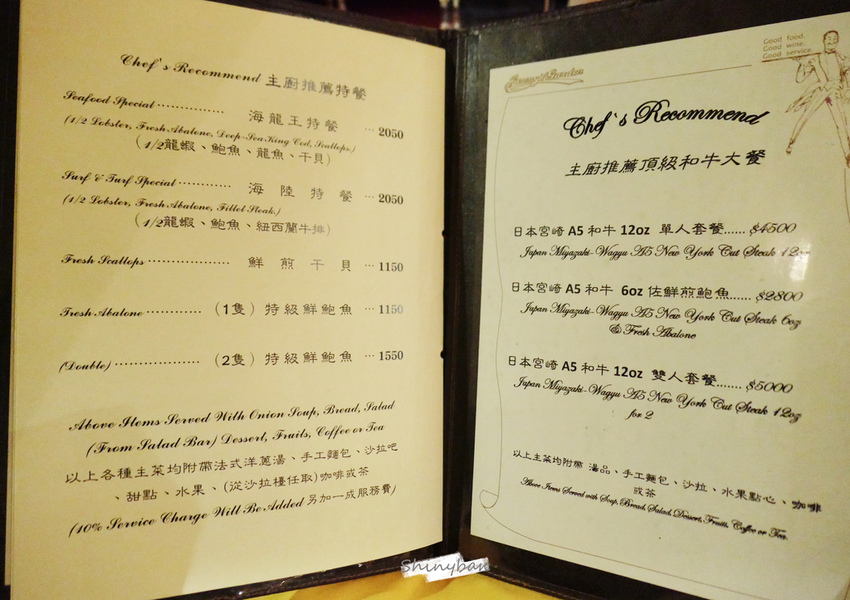 Chef's Recommend 主廚推薦特餐
Seafood Special ·············· 海龍王特餐 ··· 2050
(1/2 Lobster, Fresh Abalone, Deep-Sea King Cod, Scallops.)
(1/2龍蝦、鮑魚、龍魚、干貝)
Surf & Turf Special ··········· 海陸特餐 ··· 2050
(1/2 Lobster, Fresh Abalone, Fillet Steak.)
(1/2龍蝦、鮑魚、紐西蘭牛排)
Fresh Scallops ················· 鮮煎干貝 ··· 1150
Fresh Abalone ············ (1隻) 特級鮮鮑魚 ··· 1150
(Double) ·················· (2隻) 特級鮮鮑魚 ··· 1550
Above Items Served With Onion Soup, Bread, Salad
(From Salad Bar) Dessert, Fruits, Coffee or Tea
以上各種主菜均附帶法式洋蔥湯、手工麵包、沙拉吧
、甜點、水果、(從沙拉檯任取)咖啡或茶
(10% Service Charge Will Be Added 另加一成服務費)
Good food.
Good wine.
Good service.
Chef's Recommend
主廚推薦頂級和牛大餐
日本宮崎 A5 和牛 12oz 單人套餐...... $4500
Japan Miyazaki-Wagyu A5 New York Cut Steak 12oz
日本宮崎 A5 和牛 6oz 佐鮮煎鮑魚...... $2800
Japan Miyazaki-Wagyu A5 New York Cut Steak 6oz
& Fresh Abalone
日本宮崎 A5 和牛 12oz 雙人套餐....... $5000
Japan Miyazaki-Wagyu A5 New York Cut Steak 12oz
for 2
以上主菜均附帶 湯品、手工麵包、沙拉、水果點心、咖啡
或茶
Above Items Served with Soup, Bread, Salad, Dessert, Fruits, Coffee or Tea.
Shinyban